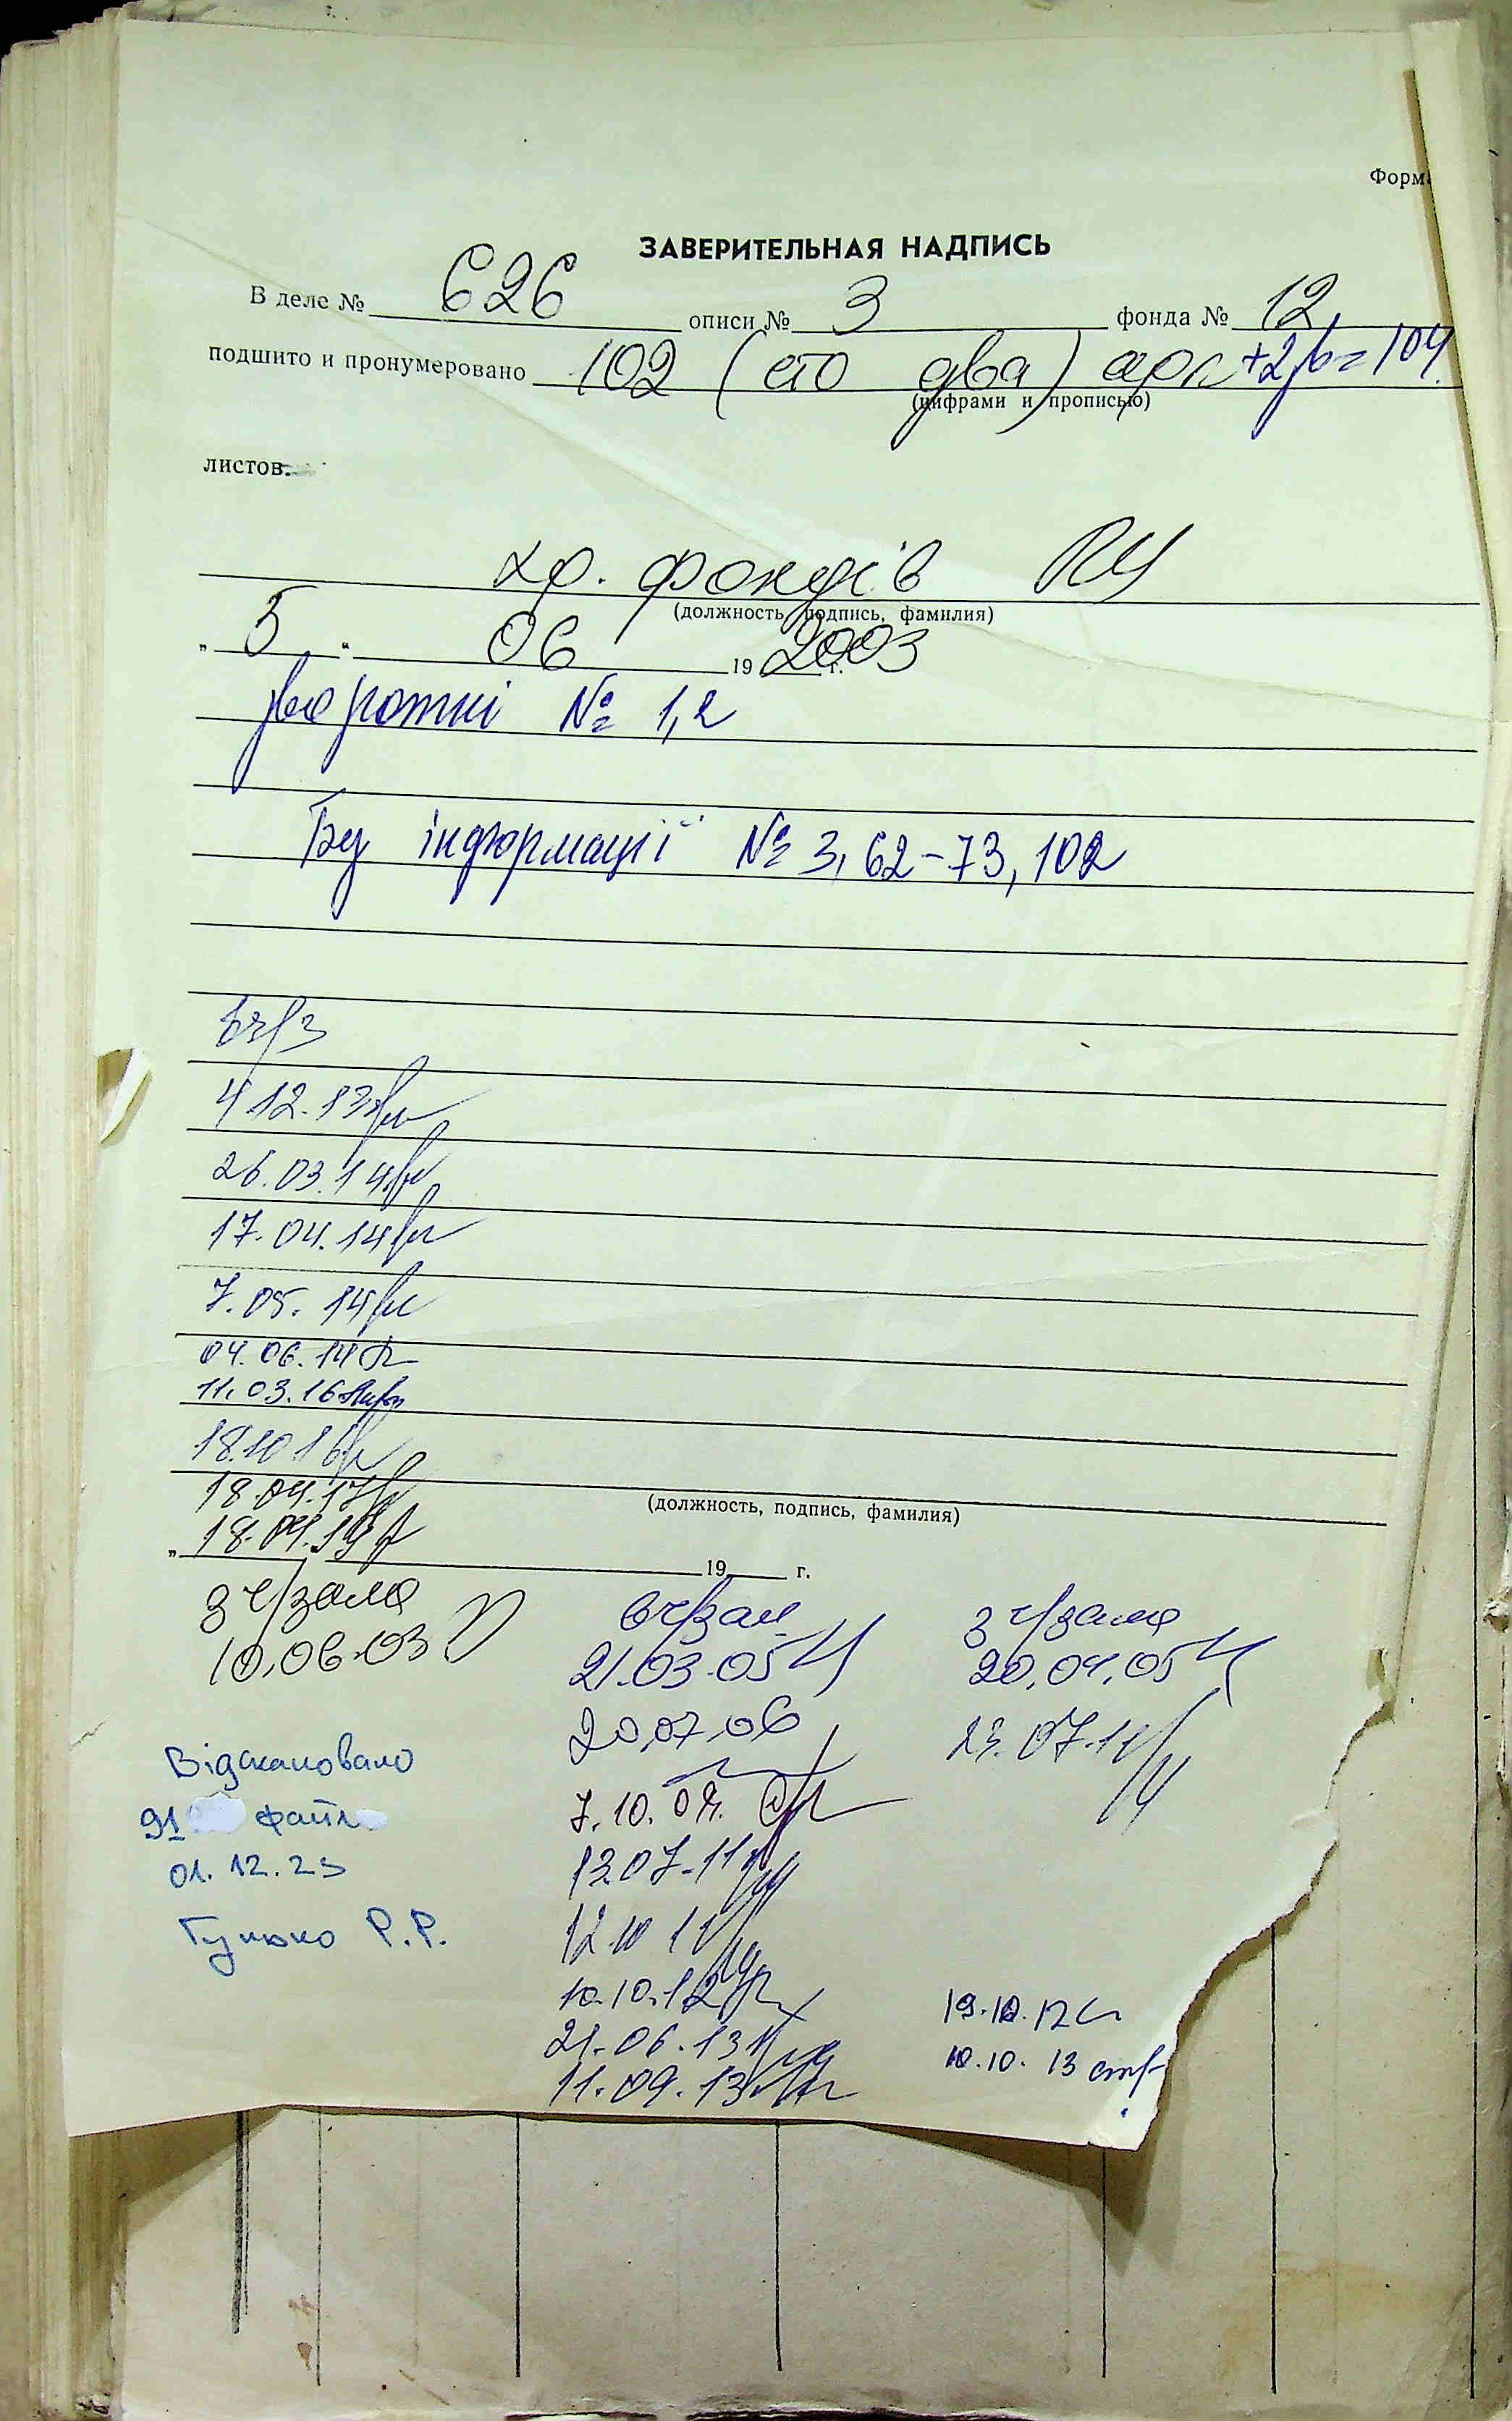 Форма
ЗАВЕРИТЕЛЬНАЯ НАДПИСЬ
В деле № 626 описи № 3 фонда № 12
подшито и пронумеровано 102 (сто два) арк +2
(цифрами и прописью)
листов.
хр. фондів
(должность, подпись, фамилия)
„ 5 " 06 19 2003 г.
зворотні № 1,2
Без інформації № 3, 62-73, 102
в ч/з
4 12.13
26.03.14
17.04.14
7.05.14
04.06.14
11.03.16
18.10 16
18.04.17
18.04.19
(должность, подпись, фамилия)
„ 19 г.
з ч/зала
10.06.03
в ч/зал
21.03.05
20.07.06
7.10.09.
13.07.11
12.10 11
10.10.12
21.06.13
11.09.13
з ч/зала
20.04.05
23.07.11
19.10.12
10.10.13
Відскановано
91 файл
01.12.23
Гунько Р.Р.